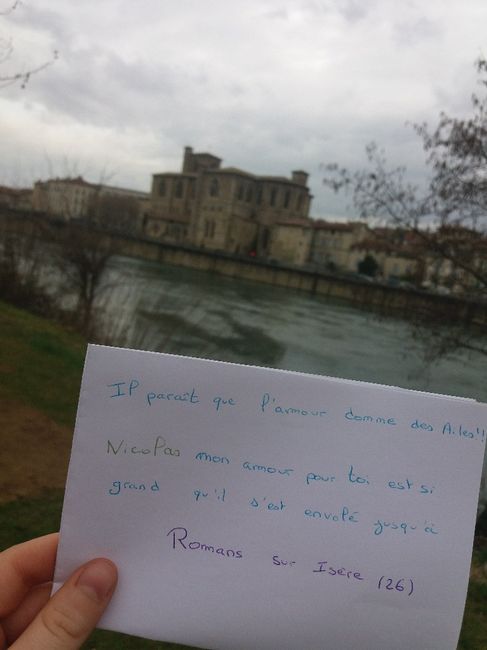 Il paraît que l'amour domme des Ailes!!
Nicolas mon amour pour toi est si
grand qu'il s'est envolé jusqu'à
Romans sur Isère (26)